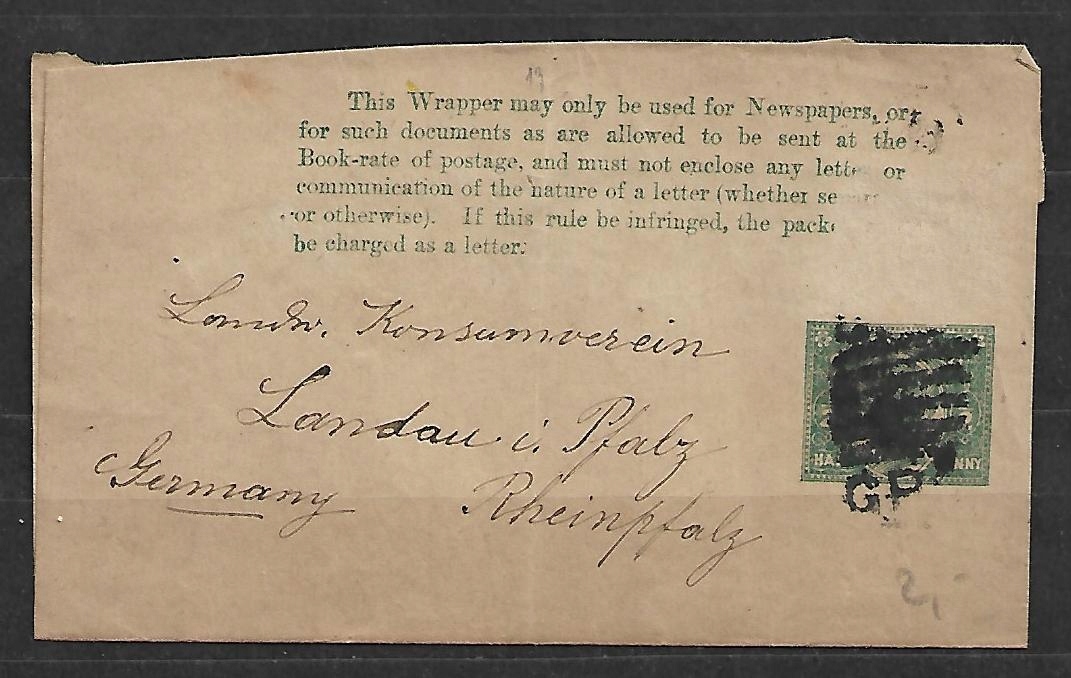 19
This Wrapper may only be used for Newspapers, or
for such documents as are allowed to be sent at the
Book-rate of postage, and must not enclose any lette or
communication of the nature of a letter (whether se
or otherwise). If this rule be infringed, the pack
be charged as a letter.
Landw. Konsumverein
Landau i. Pfalz
Germany Rheinpfalz
HA NNY
2,